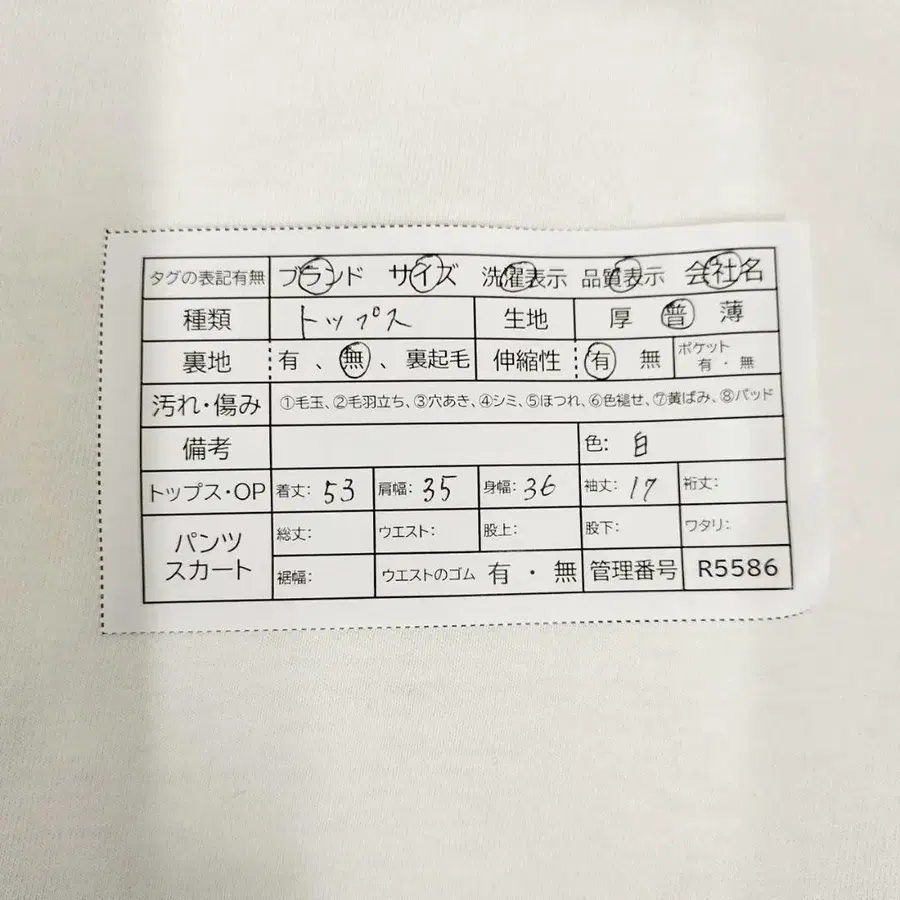 タグの表記有無 ブランド サイズ 洗濯表示 品質表示 会社名
種類 トップス 生地 厚 普 薄
裏地 有 、無 、裏起毛 伸縮性 有 無 ポケット 有・無
汚れ・傷み ①毛玉、②毛羽立ち、③穴あき、④シミ、⑤ほつれ、⑥色褪せ、⑦黄ばみ、⑧パッド
備考 色: 白
トップス・OP 着丈: 53 肩幅: 35 身幅: 36 袖丈: 17 裄丈:
パンツ スカート 総丈: ウエスト: 股上: 股下: ワタリ:
裾幅: ウエストのゴム 有・無 管理番号 R5586